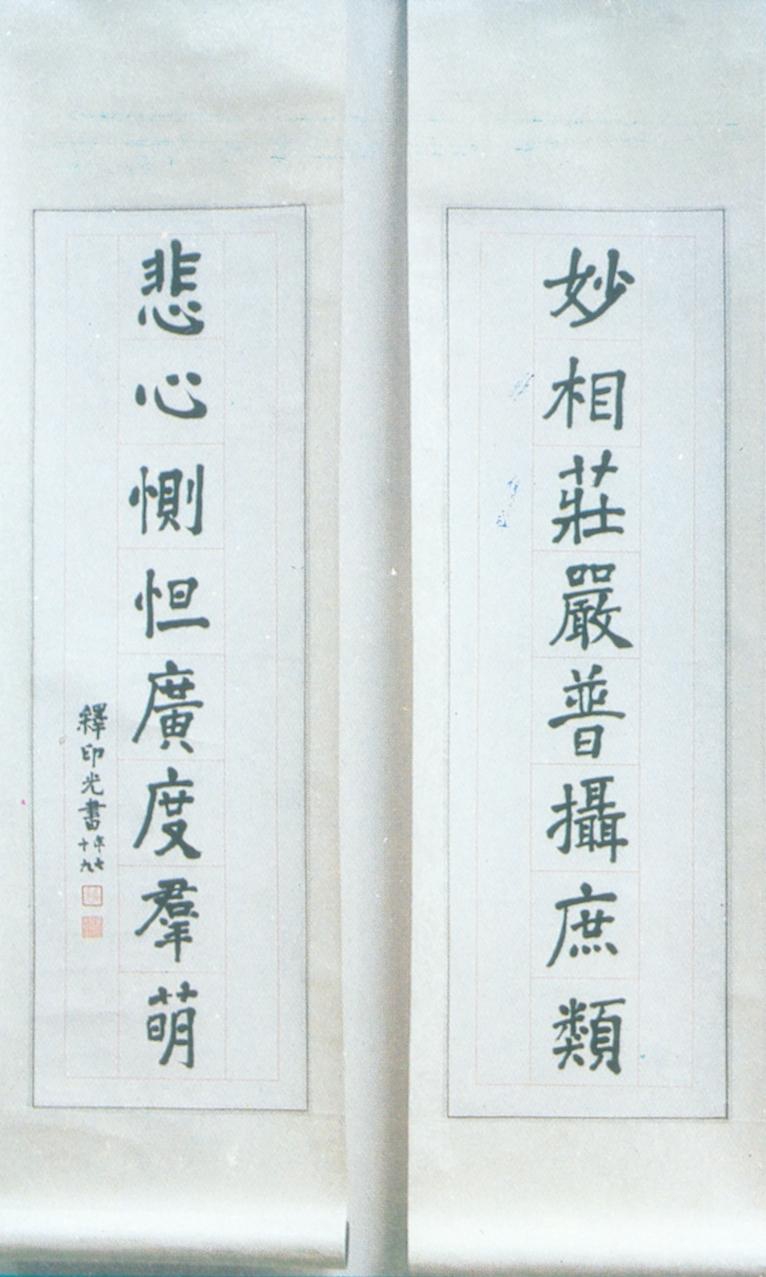 妙相莊嚴普攝庶類
悲心惻怛廣度羣萌
釋印光書
年七
十九